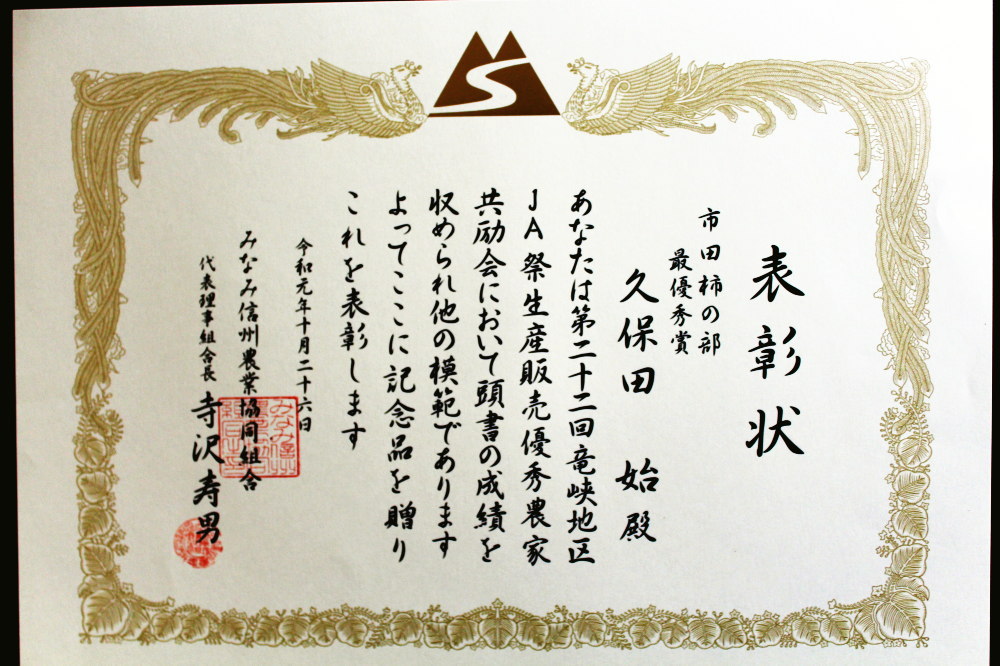 表彰状
市田柿の部
最優秀賞
久保田 始 殿
あなたは第二十二回竜峡地区
JA祭生産販売優秀農家
共励会において頭書の成績を
収められ他の模範であります
よってここに記念品を贈り
これを表彰します
令和元年十月二十六日
みなみ信州農業協同組合
代表理事組合長 寺沢寿男